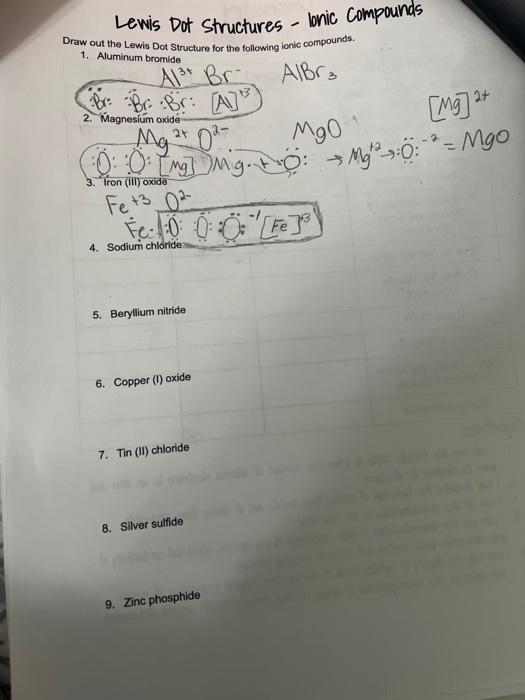 Lewis Dot Structures - Ionic Compounds
Draw out the Lewis Dot Structure for the following ionic compounds.
1. Aluminum bromide
Al³⁺ Br⁻ AlBr₃
:Br: :Br: :Br: [Al]⁺³
[Mg]²⁺
2. Magnesium oxide
Mg²⁺ O²⁻ MgO
:O: :O: [Mg] Mg· + ·O: → Mg⁺² → :O:⁻² = MgO
3. Iron (III) oxide
Fe⁺³ O²⁻
Fe· :O: :O: :O:⁻¹ [Fe]⁺³
4. Sodium chloride
5. Beryllium nitride
6. Copper (I) oxide
7. Tin (II) chloride
8. Silver sulfide
9. Zinc phosphide